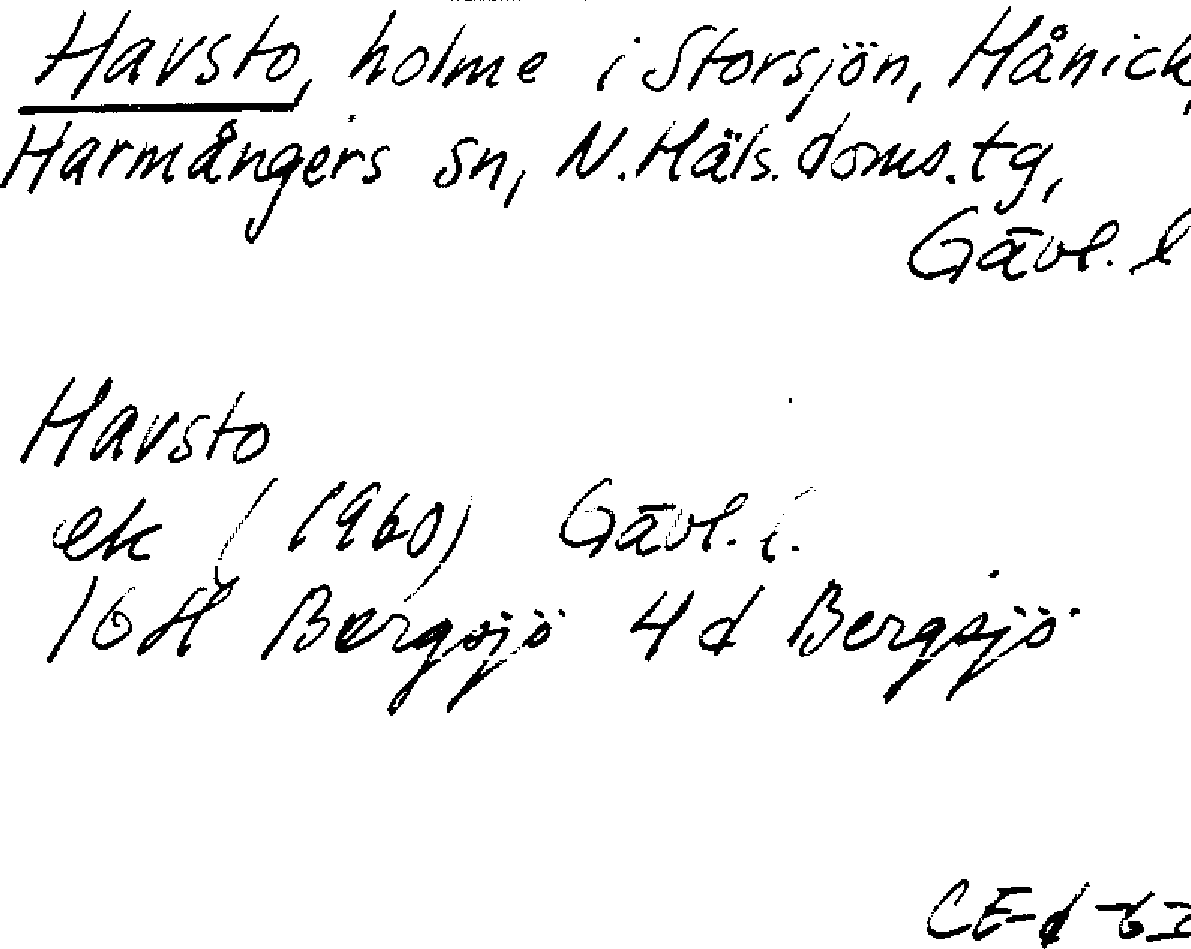 Havsto, holme i Storsjön, Hånick,
Harmångers sn, N. Häls. doms. tg,
Gävl. l
Havsto
ek (1960) Gävl. l.
16H Bergsjö 4d Bergsjö